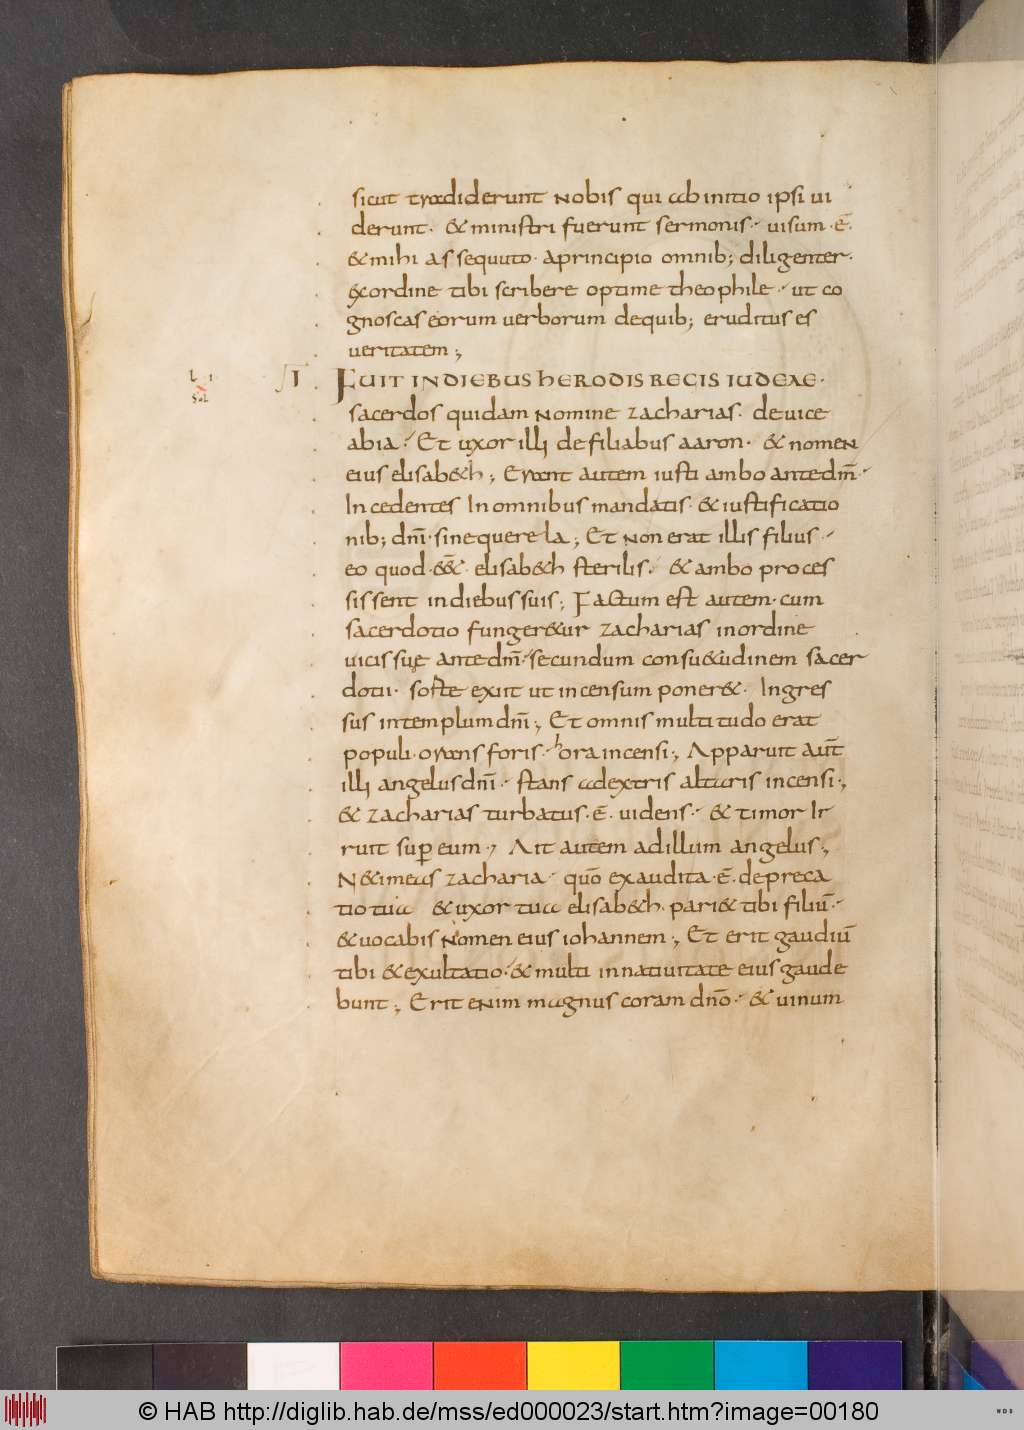 sicut tradiderunt nobis qui ab initio ipsi ui
derunt· & ministri fuerunt sermonis· uisum·ē·
& mihi assequuto· aprincipio omnib; diligenter·
excordine tibi scribere optime theophile· ut co
gnoscas eorum uerborum dequib; eruditus es
ueritatem;
L I
S L
I FUIT INDIEBUS hERODIS REGIS IUDEAE·
sacerdos quidam nomine zacharias· deuice
abia· Et uxor illi defiliabus aaron· & nomen
eius elisab&h; Erant autem iusti ambo antedm̄·
Incedentes In omnibus mandatis· & iustificatio
nib; dnī· sinequerela; Et non erat illis filius·
eo quod·e&· elisab&h sterilis· & ambo proces
sissent indiebus suis; Factum est autem· cum
sacerdotio funger&ur zacharias inordine
uicis suę antedm̄· secundum consu&udinem sacer
dotii· sorte exiit ut incensum poner&· Ingres
sus intemplum dnī; Et omnis multitudo erat
populi· orans foris· hora incensi; Apparuit aut̄
illi angelus dnī· stans adextris altaris incensi;
& zacharias turbatus·ē· uidens· & timor Ir
ruit sup eum; Ait autem adillum angelus;
N&imeas zacharia· quō exaudita·ē· depreca
tio tua & uxor tua elisab&h· pari& tibi filiū·
& uocabis nomen eius iohannem; Et erit gaudiū
tibi & exultatio· & multi innatiuitate eius gaude
bunt; Erit enim magnus coram dnō· & uinum
© HAB http://diglib.hab.de/mss/ed000023/start.htm?image=00180